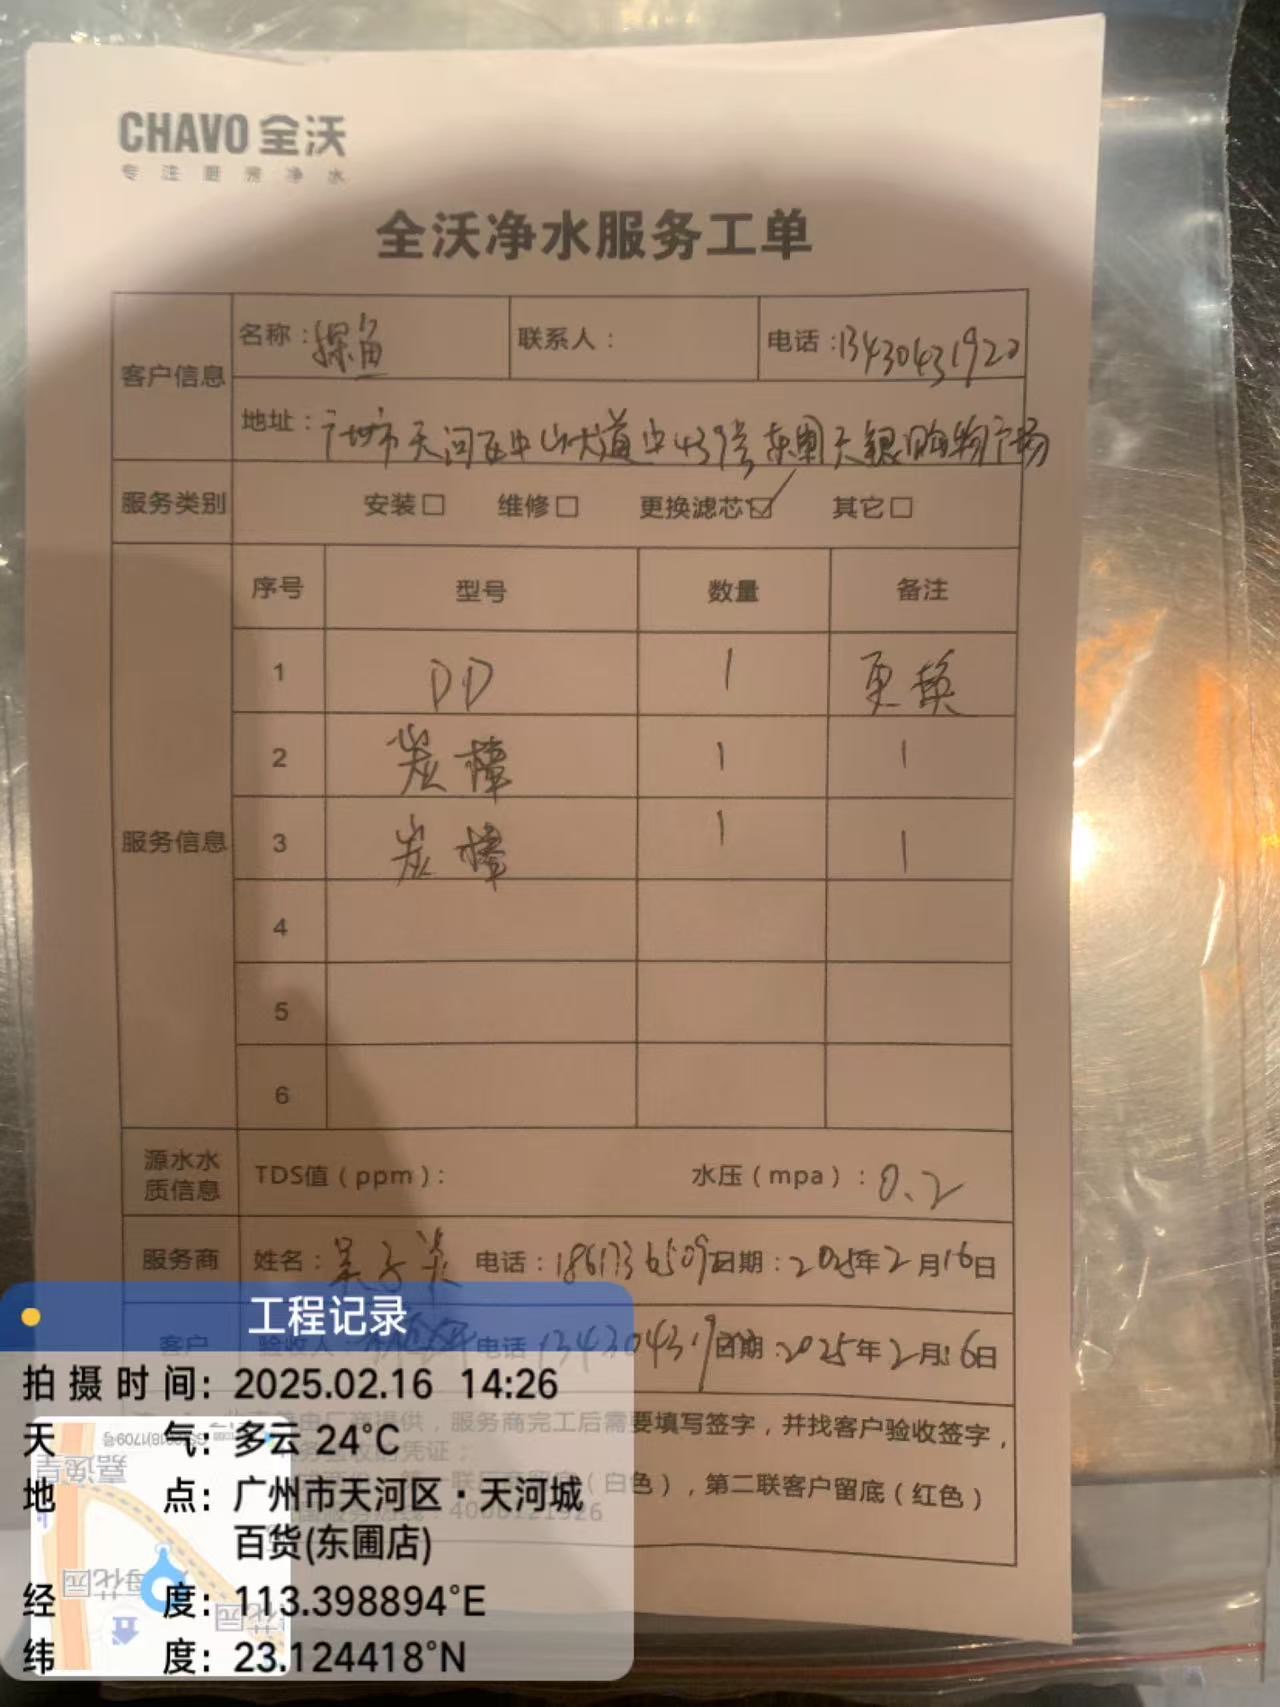 CHAVO 全沃
专注厨房净水
全沃净水服务工单
客户信息
名称：探鱼 联系人： 电话：13430431920
地址：广州市天河区中山大道中439号东圃天银购物广场
服务类别 安装☐ 维修☐ 更换滤芯☑ 其它☐
服务信息
序号 型号 数量 备注
1 PP 1 更换
2 炭棒 1 1
3 炭棒 1 1
4
5
6
源水水质信息 TDS值（ppm）： 水压（mpa）：0.2
服务商 姓名： 电话：1861736509 日期：2025年2月16日
客户 验收人： 电话 134304319 日期：2025年2月16日
由厂商提供，服务商完工后需要填写签字，并找客户验收签字，
务验收的凭证；
联 （白色），第二联客户留底（红色）
服务热线：4000121926
工程记录
拍摄时间：2025.02.16 14:26
天气：多云 24°C
地点：广州市天河区·天河城
百货(东圃店)
经度：113.398894°E
纬度：23.124418°N